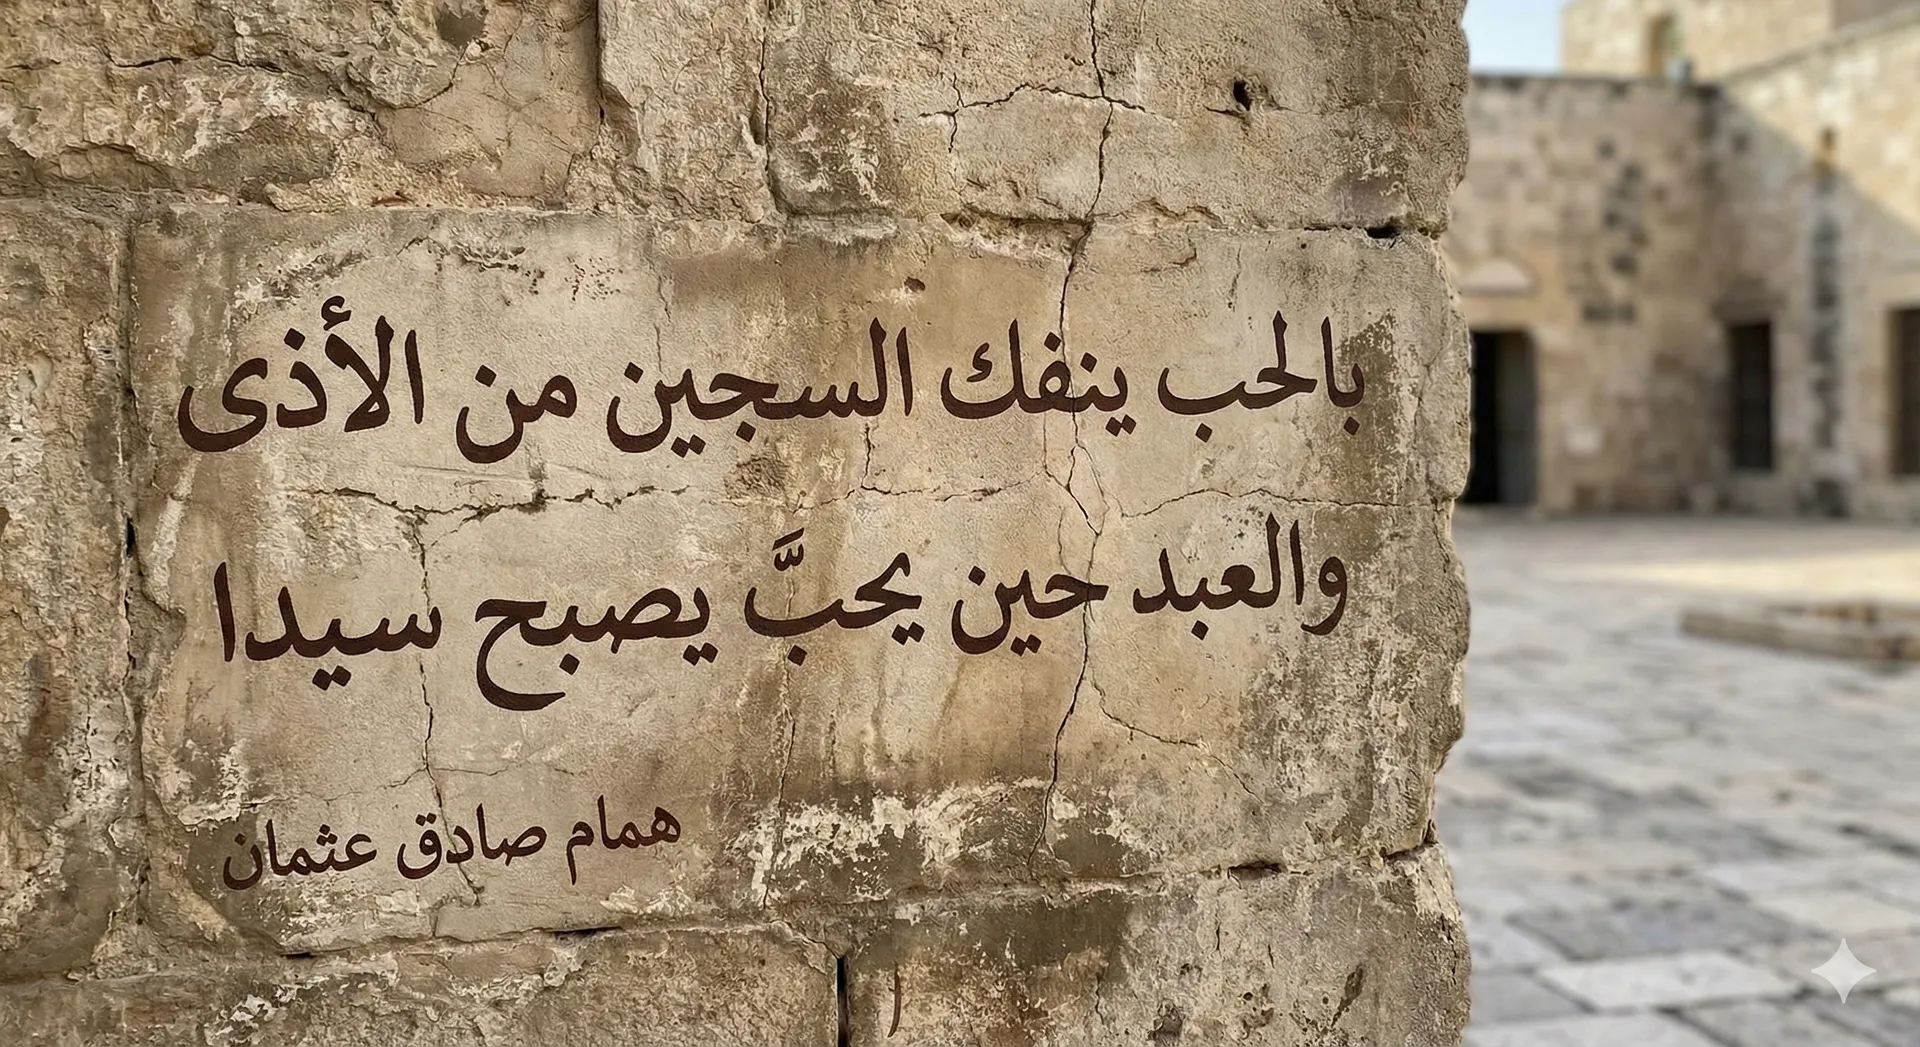 بالحب ينفك السجين من الأذى
والعبد حين يحبَّ يصبح سيدا
همام صادق عثمان